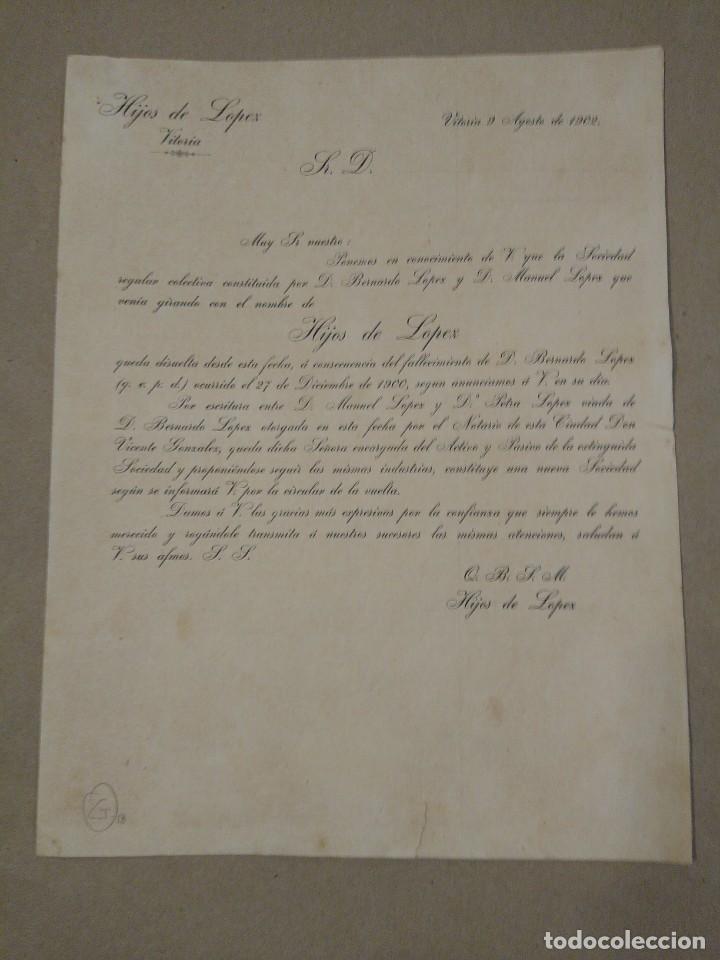 Hijos de Lopez
Vitoria
Vitoria 9 Agosto de 1902.
Sr. D.
Muy Sr nuestro:
Ponemos en conocimiento de V. que la Sociedad
regular colectiva constituida por D. Bernardo Lopez y D. Manuel Lopez que
venía girando con el nombre de
Hijos de Lopez
queda disuelta desde esta fecha, á consecuencia del fallecimiento de D. Bernardo Lopez
(q. e. p. d.) ocurrido el 27 de Diciembre de 1900, segun anunciamos á V. en su dia.
Por escritura entre D. Manuel Lopez y D.ª Petra Lopez viuda de
D. Bernardo Lopez otorgada en esta fecha por el Notario de esta Ciudad Don
Vicente Gonzalez, queda dicha Señora encargada del Activo y Pasivo de la extinguida
Sociedad y proponiéndose seguir las mismas industrias, constituye una nueva Sociedad
según se informará V. por la circular de la vuelta.
Damos á V. las gracias más expresivas por la confianza que siempre le hemos
merecido y rogándole transmita á nuestros sucesores las mismas atenciones, saludan á
V. sus afmos. S. S.
Q. B. S. M.
Hijos de Lopez
todocoleccion